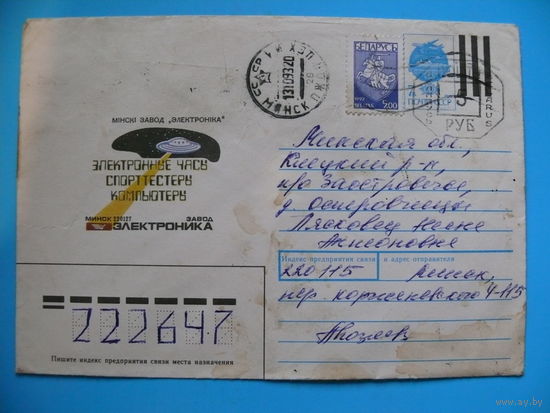 МІНСКІ ЗАВОД „ЭЛЕКТРОНІКА"
ЭЛЕКТРОННЫЕ ЧАСЫ
СПОРТТЕСТЕРЫ
КОМПЬЮТЕРЫ
МИНСК 220127 ЗАВОД
ЭЛЕКТРОНИКА
СССР
МІНСК ПЖД
БЕЛАРУСЬ
1992
2.00
ПОЧТА СССР
BELARUS
РУБ
Минская обл.,
Клецкий р-н,
п/о Заостровечье,
д. Осиповщина
Лясковец Нине
Антоновне
Индекс предприятия связи и адрес отправителя
220115 Минск,
пер. Корженевского 4-115
222647
Пишите индекс предприятия связи места назначения